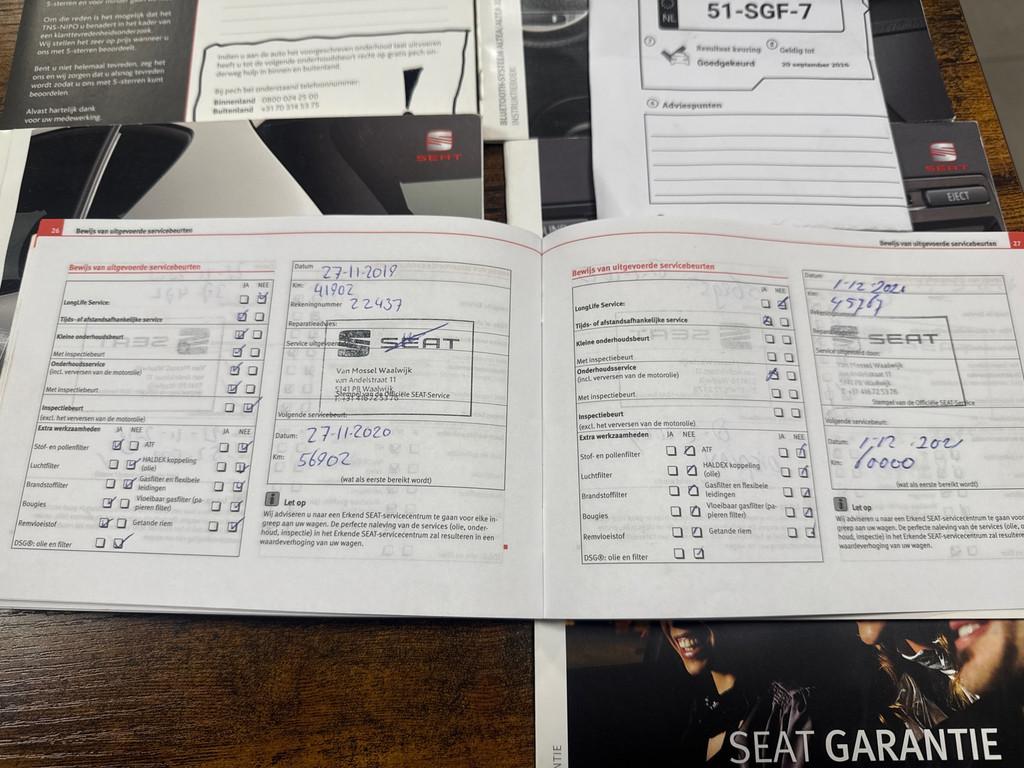 5-sterren en voor minder gaan
Om die reden is het mogelijk dat de
TNS-NIPO u benadert in het kader van
een klanttevredenheidsonderzoek.
Wij stellen het zeer op prijs wanneer u
ons met 5-sterren beoordeelt.
Bent u niet helemaal tevreden, zeg het
ons en wij zorgen dat u alsnog tevreden
wordt zodat u ons met 5-sterren kunt
beoordelen.
Alvast hartelijk dank
voor uw medewerking.
Indien u aan de auto het voorgeschreven onderhoud laat uitvoeren
heeft u tot de volgende onderhoudsbeurt recht op gratis pech on-
derweg hulp in binnen en buitenland.
Bij pech bel onderstaand telefoonnummer:
Binnenland 0800 024 25 00
Buitenland +31 70 314 53 75
BLUETOOTH-SYSTEM
INSTRUCTIEBOEK
NL
51-SGF-7
7 Resultaat keuring
Goedgekeurd
8 Geldig tot
20 september 2026
Adviespunten
SEAT
SEAT
EJECT
26 Bewijs van uitgevoerde servicebeurten
Bewijs van uitgevoerde servicebeurten
JA NEE
LongLife Service:
Tijds- of afstandsafhankelijke service
Kleine onderhoudsbeurt
Met inspectiebeurt
Onderhoudsservice
(incl. verversen van de motorolie)
Met inspectiebeurt
Inspectiebeurt
(excl. het verversen van de motorolie)
Extra werkzaamheden JA NEE JA NEE
Stof- en pollenfilter ATF
Luchtfilter HALDEX koppeling
(olie)
Brandstoffilter Gasfilter en flexibele
leidingen
Bougies Vloeibaar gasfilter (pa-
pieren filter)
Remvloeistof Getande riem
DSG®: olie en filter
Datum 27-11-2019
Km: 41902
Rekeningnummer 22437
Reparatieadvies:
Service uitgevoerd
SEAT
Van Mossel Waalwijk
van Andelstraat 11
5141 PB Waalwijk
Stempel van de Officiële SEAT-Service
T: +31 416 72 53 76
Volgende servicebeurt:
Datum: 27-11-2020
Km: 56902
(wat als eerste bereikt wordt)
i Let op
Wij adviseren u naar een Erkend SEAT-servicecentrum te gaan voor elke in-
greep aan uw wagen. De perfecte naleving van de services (olie, onder-
houd, inspectie) in het Erkende SEAT-servicecentrum zal resulteren in een
waardeverhoging van uw wagen.
Bewijs van uitgevoerde servicebeurten 27
Bewijs van uitgevoerde servicebeurten
JA NEE
LongLife Service:
Tijds- of afstandsafhankelijke service
Kleine onderhoudsbeurt
Met inspectiebeurt
Onderhoudsservice
(incl. verversen van de motorolie)
Met inspectiebeurt
Inspectiebeurt
(excl. het verversen van de motorolie)
Extra werkzaamheden JA NEE JA NEE
Stof- en pollenfilter ATF
Luchtfilter HALDEX koppeling
(olie)
Brandstoffilter Gasfilter en flexibele
leidingen
Bougies Vloeibaar gasfilter (pa-
pieren filter)
Remvloeistof Getande riem
DSG®: olie en filter
Datum:
Km:
SEAT
Service uitgevoerd door:
Van Mossel Waalwijk
van Andelstraat 11
5141 PB Waalwijk
T: +31 416 72 53 76
Stempel van de Officiële SEAT-Service
Volgende servicebeurt:
Datum: 1-12-202
Km: 60000
(wat als eerste bereikt wordt)
i Let op
Wij adviseren u naar een Erkend SEAT-servicecentrum te gaan voor
ingreep aan uw wagen. De perfecte naleving van de services (olie, onder-
houd, inspectie) in het Erkende SEAT-servicecentrum zal resulteren
waardeverhoging van uw wagen.
SEAT GARANTIE